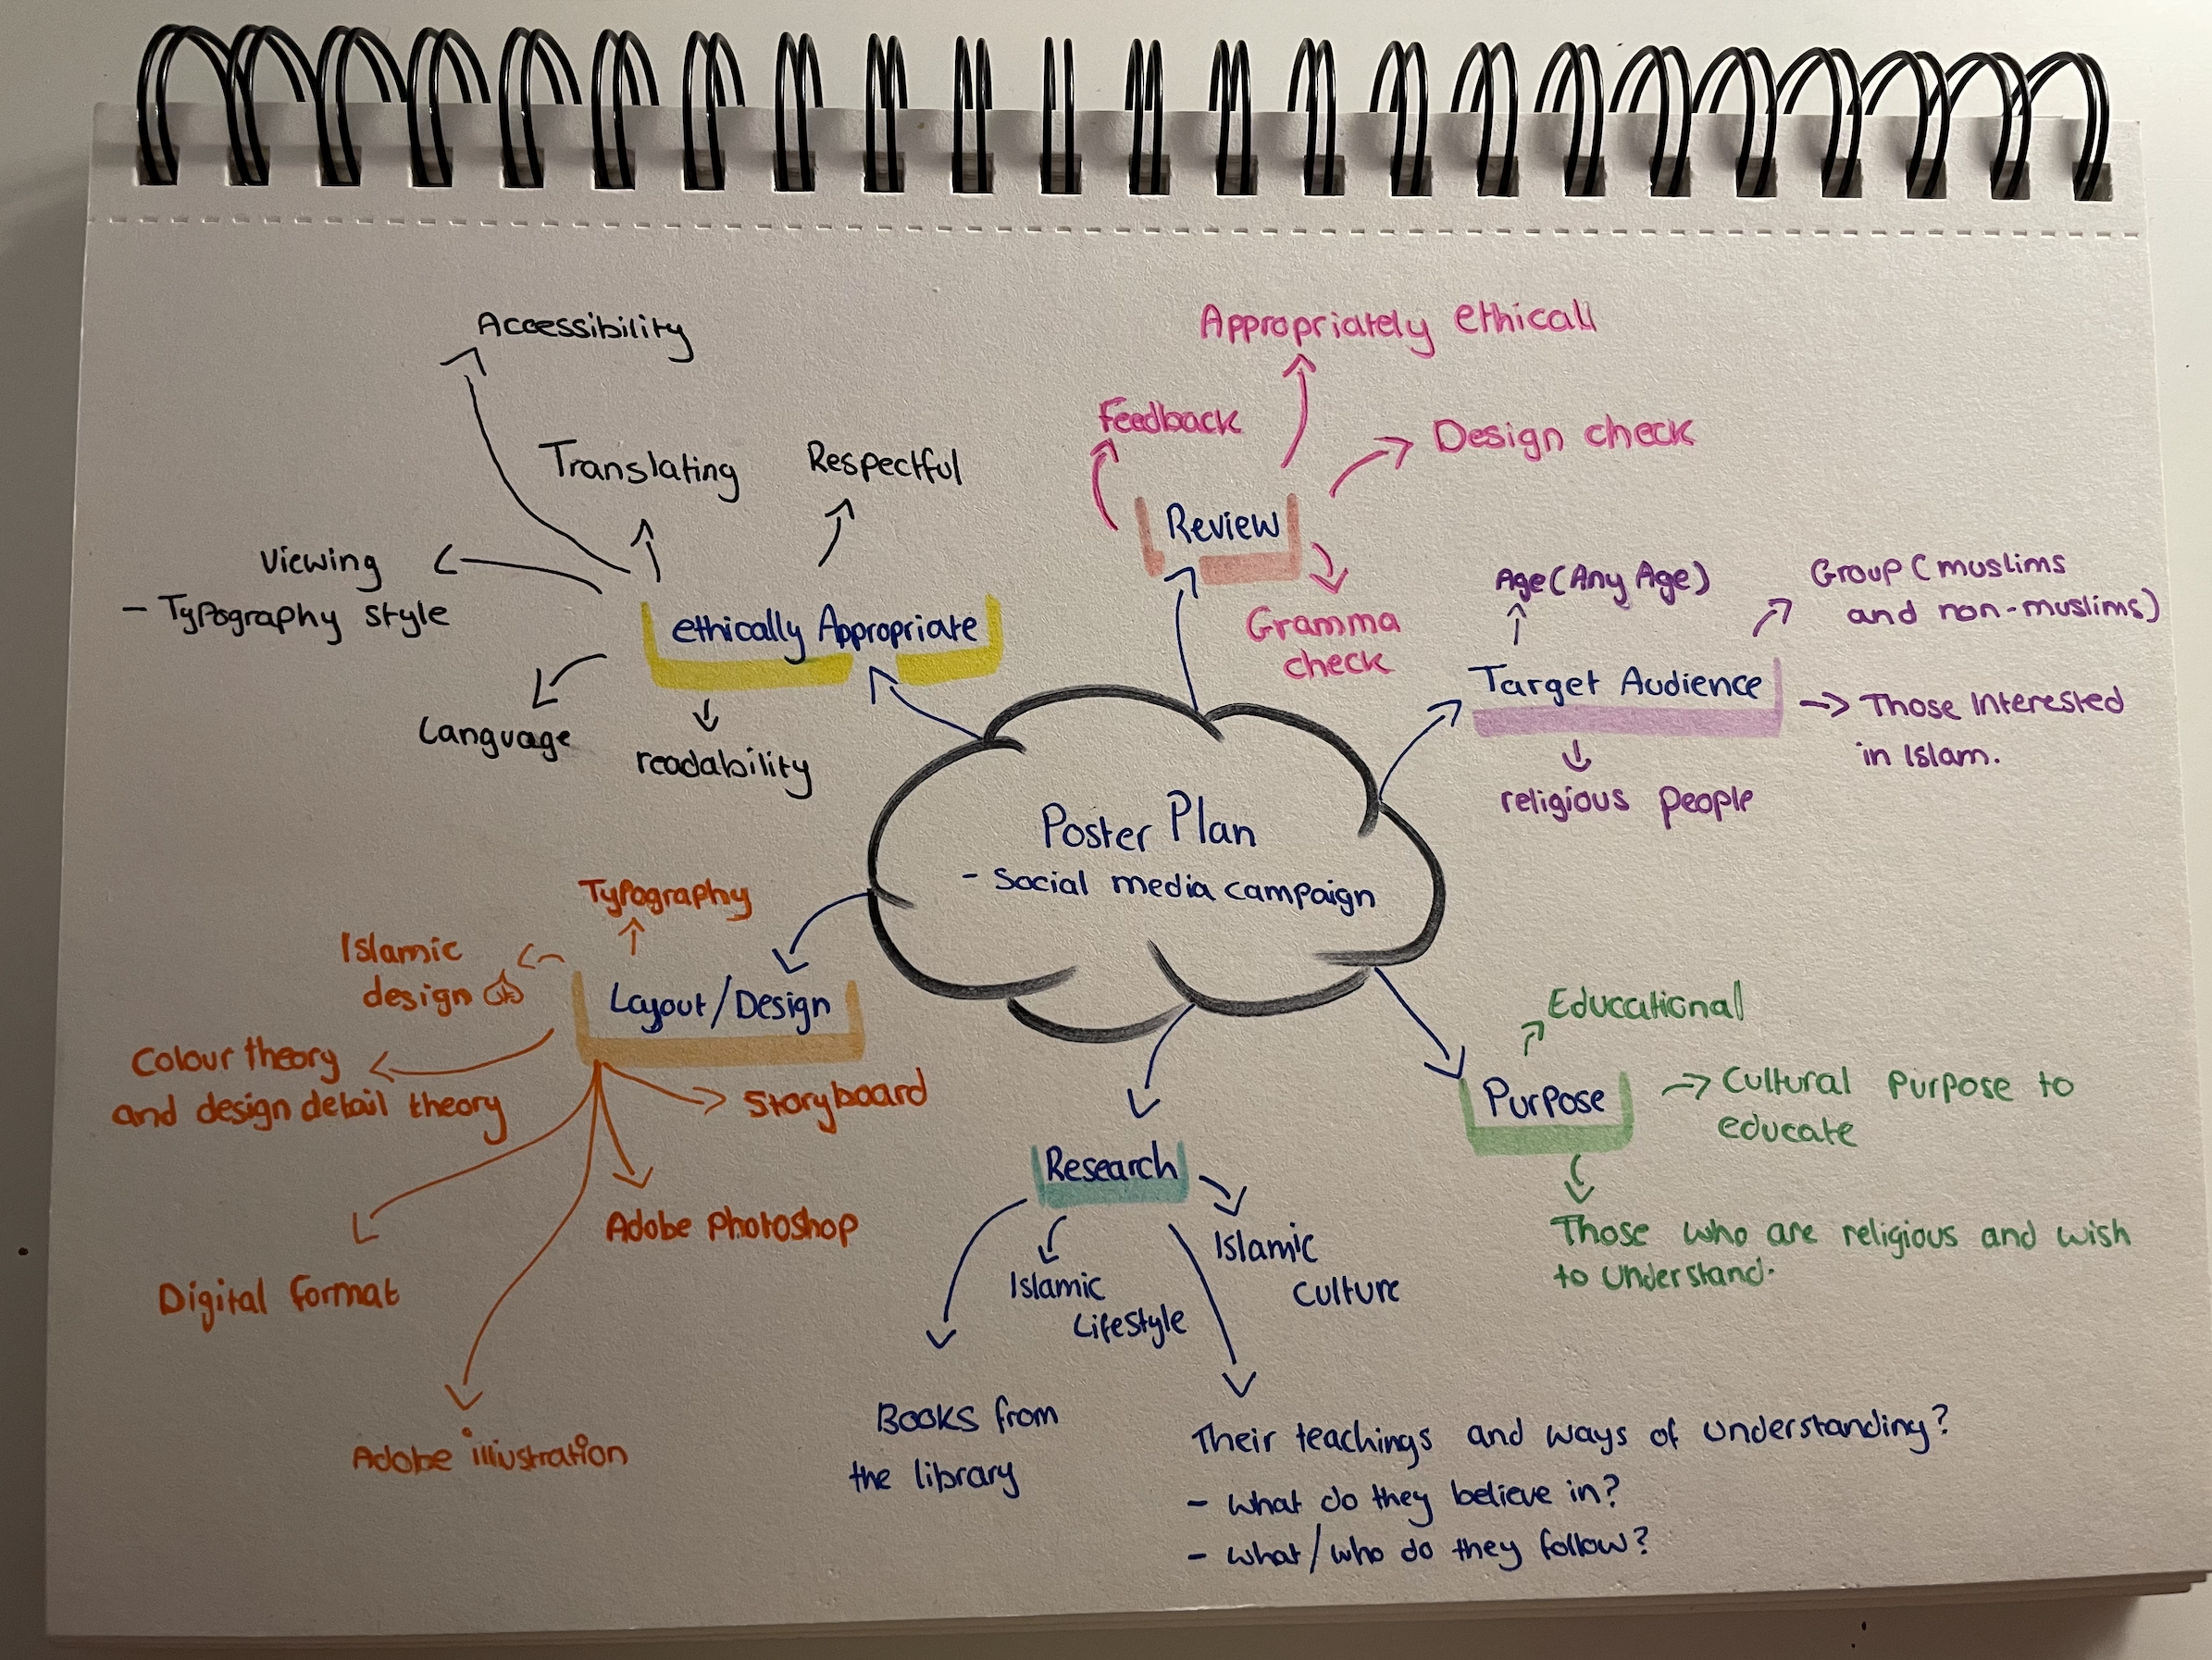 Poster Plan
- Social media campaign
ethically Appropriate
Accessibility
Translating
Respectful
Viewing
- Typography style
Language
readability
Review
Feedback
Appropriately ethicall
Design check
Gramma
check
Target Audience
Age (Any Age)
Group (muslims
and non-muslims)
Those Interested
in Islam.
religious people
Purpose
Educational
Cultural purpose to
educate
Those who are religious and wish
to understand.
Research
Islamic
Culture
Islamic
Lifestyle
Books from
the library
Their teachings and ways of understanding?
- what do they believe in?
- what/who do they follow?
Layout/Design
Typography
Islamic
design
Colour theory
and design detail theory
Storyboard
Adobe Photoshop
Digital format
Adobe illustration